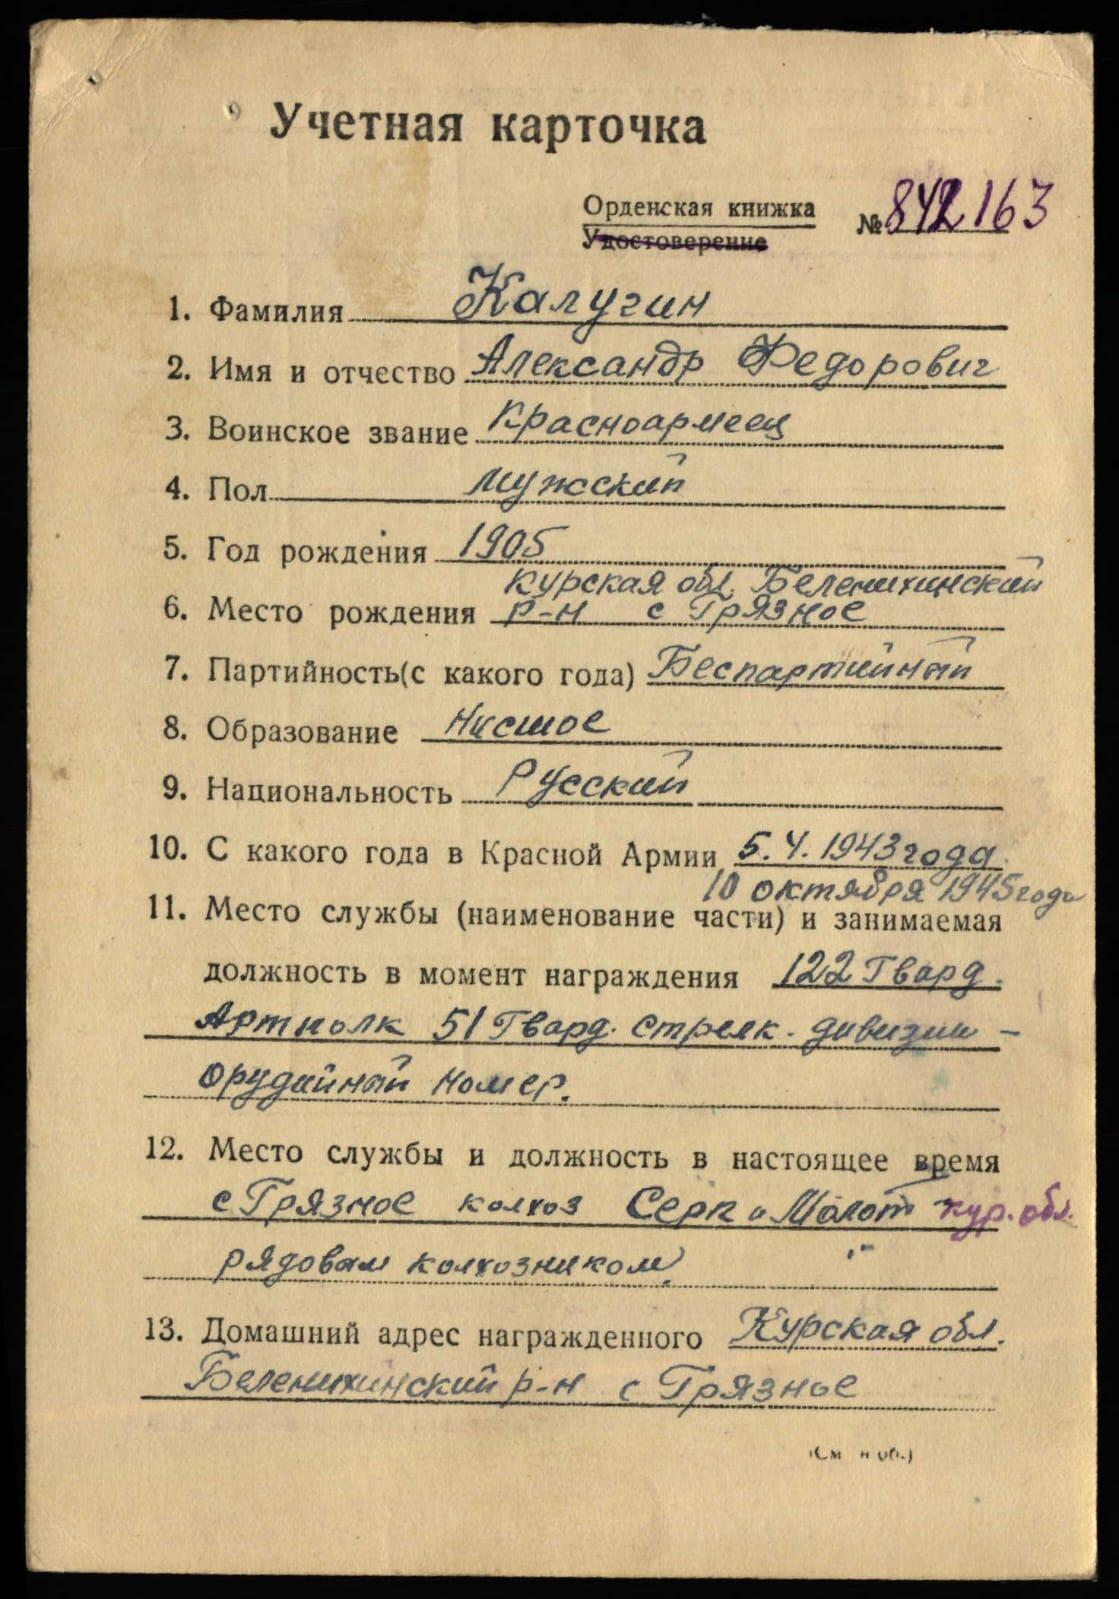 Учетная карточка
Орденская книжка № 842163
Удостоверение
1. Фамилия Калугин
2. Имя и отчество Александр Федорович
3. Воинское звание Красноармеец
4. Пол мужский
5. Год рождения 1905
Курская обл. Беленихинский
6. Место рождения р-н с Грязное
7. Партийность(с какого года) Беспартийный
8. Образование Нисшое
9. Национальность Русский
10. С какого года в Красной Армии 5.4.1943 года
10 октября 1945 года
11. Место службы (наименование части) и занимаемая
должность в момент награждения 122 Гвард.
Артполк 51 Гвард. стрелк. дивизии –
орудийный номер.
12. Место службы и должность в настоящее время
с Грязное колхоз Серп и Молот кур. обл.
рядовым колхозником.
13. Домашний адрес награжденного Курская обл.
Беленихинский р-н с Грязное
(См на об.)